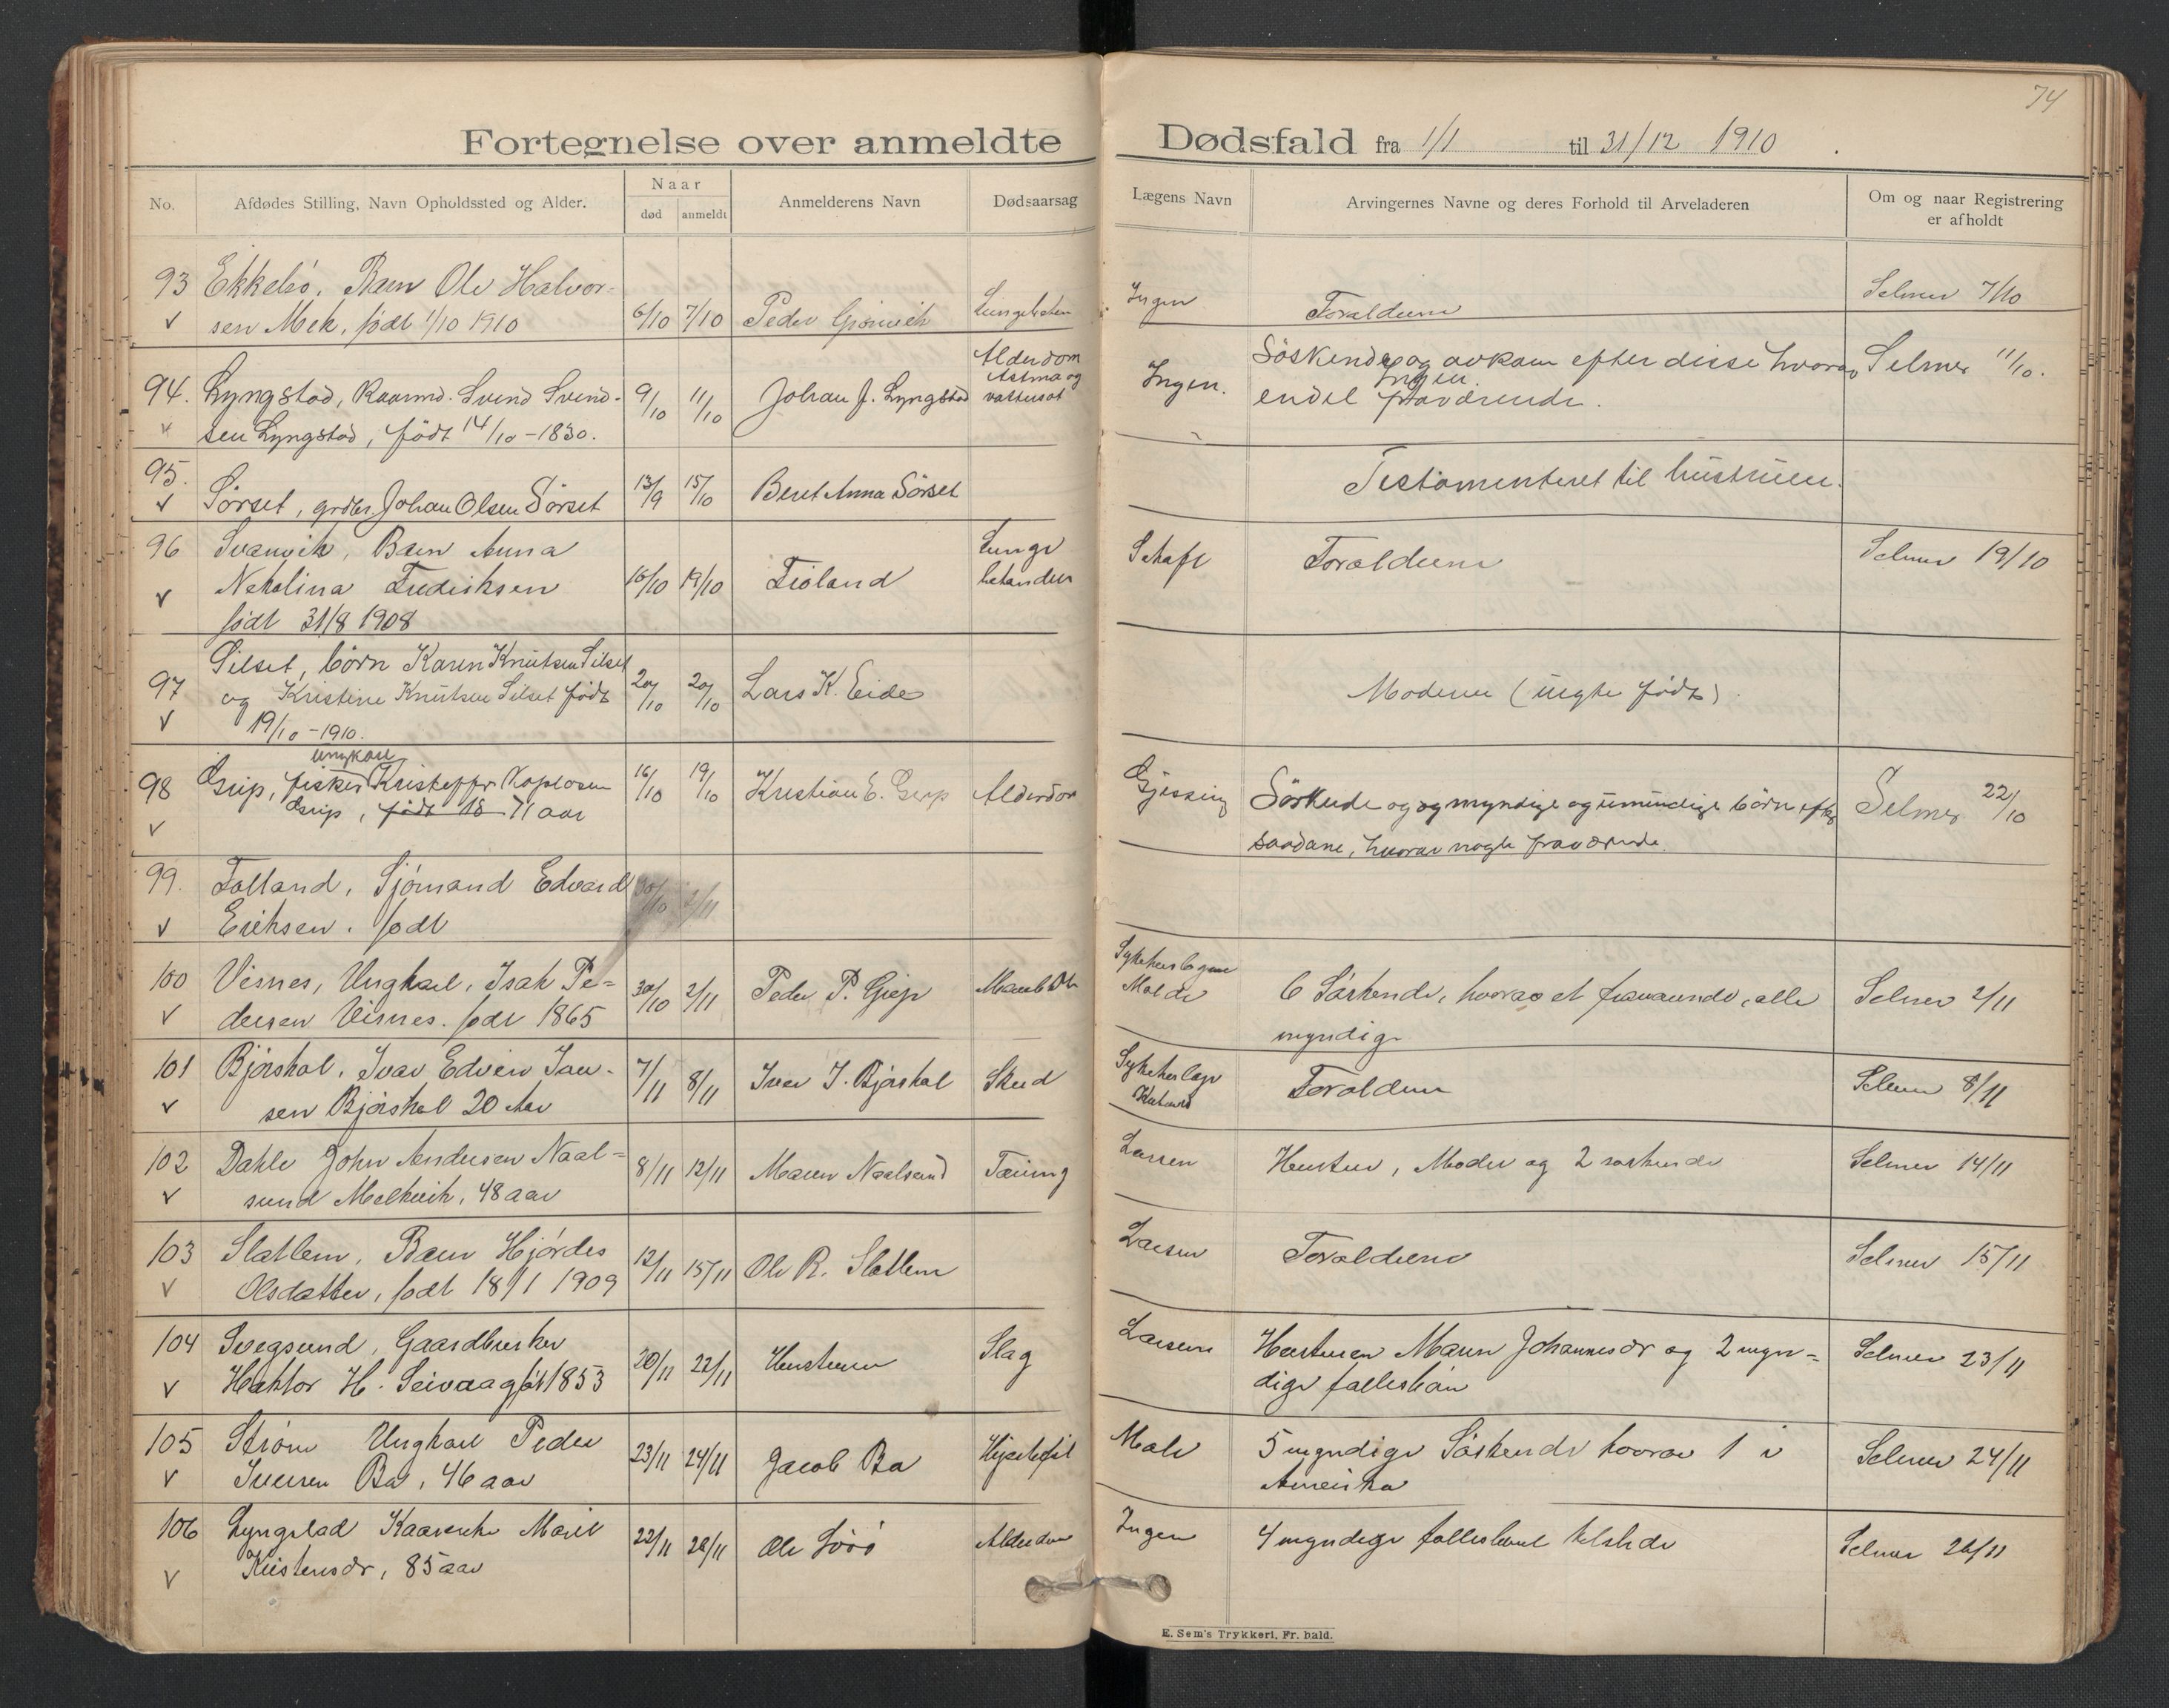 74
Fortegnelse over anmeldte Dødsfald fra 1/1 til 31/12 1910
No. Afdødes Stilling, Navn Opholdssted og Alder. Naar død anmeldt Anmelderens Navn Dødsaarsag Lægens Navn Arvingernes Navne og deres Forhold til Arveladeren Om og naar Registrering er afholdt
93 Ekkelsö, Barn Ole Halvor- Ingen Selmer 7/10
sen Mek, födt 1/10 1910 6/10 7/10 Peder Lungebeten Forældrene
94. Lyngstad, Kaarmd. Svend Svend- 9/10 11/10 Johan J. Lyngstad Alderdom Astma og vattersot Ingen. Söskende og avkom efter disse hvorav Selmer 11/10.
sen Lyngstad, födt 14/10-1830. endel Ingen fraværende.
95. Sörset, grdbr. Johan Olsen Sörset 13/9 15/10 Beret Anna Sörset Testamenteret til hustruen.
96 Svanvik, Barn Anna Lunge Schaft Forældrene Selmer 19/10
Nekolina Fredriksen 16/10 19/10 Fioland betændelse
födt 31/8 1908
97 Silset, börn Karen Knutsen Silset 20/10 20/10 Lars K. Eide Moderen (uegte födt).
og Kristine Knutsen Silset födt
19/10-1910.
ungkarl
98 Grip, fisker Kristoffer 16/10 19/10 Kristian E. Grip Alderdom Gjessing Söskende og og myndige og umyndige börn efter Selmer 22/10
Grip, födt 18 71 aar saadane, hvorav nogle fraværende.
99. Folland, Sjömand Edvard 30/10 2/11
Eriksen. födt
100 Visnes, Ungkarl, Isak Pe- 30/10 2/11 Peder P. Sykehuslægen Molde 6 Söskende, hvorav et fraværende, alle Selmer 2/11
dersen Visnes. födt 1865 myndige
101 Björskal, Ivar Edvin Ivar- 7/11 8/11 Iver I. Björskal Skud Sykehuslæge Forældrene Selmer 8/11
sen Björskal 20 Aar
102 Dahle John Andersen Naal- 8/11 12/11 Maren Naalsund Tæring Larsen Hustru, Moder og 2 söskende Selmer 14/11
sund Melkvik, 48 aar
103 Slatlem, Barn Hjördis 12/11 15/11 Ole R. Slatlem Larsen Forældrene Selmer 15/11
Olsdatter, födt 18/1 1909
104 Svegsund, Gaardbruker 20/11 22/11 Hustruen Slag Larsen Hustruen Maren Johannesdr og 2 myn- Selmer 23/11
Haktor H. Seivaag födt 1853 dige fællesbörn
105 Ström Ungkarl Peder 23/11 24/11 Jacob Bø Hjertefeil Male 5 myndige Söskende hvorav 1 i Selmer 24/11
Iversen Bø, 46 aar Amerika
106 Lyngstad Kaarenke Marit 22/11 26/11 Ole Alderdom Ingen 4 myndige fællesbarn tilstede Selmer 26/11
Kristensdr, 85 aar
E. Sem's Trykkeri, Fr. hald.